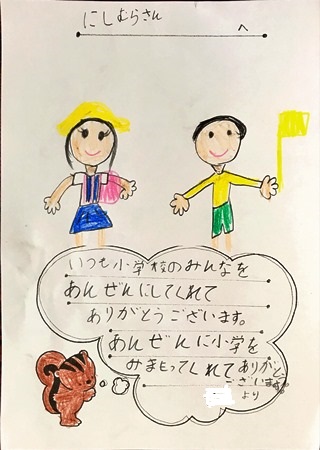 にしむらさん
へ
いつも小学校のみんなを
あんぜんにしてくれて
ありがとうございます。
あんぜんに小学を
みまもってくれてありがとう
ございます。
より